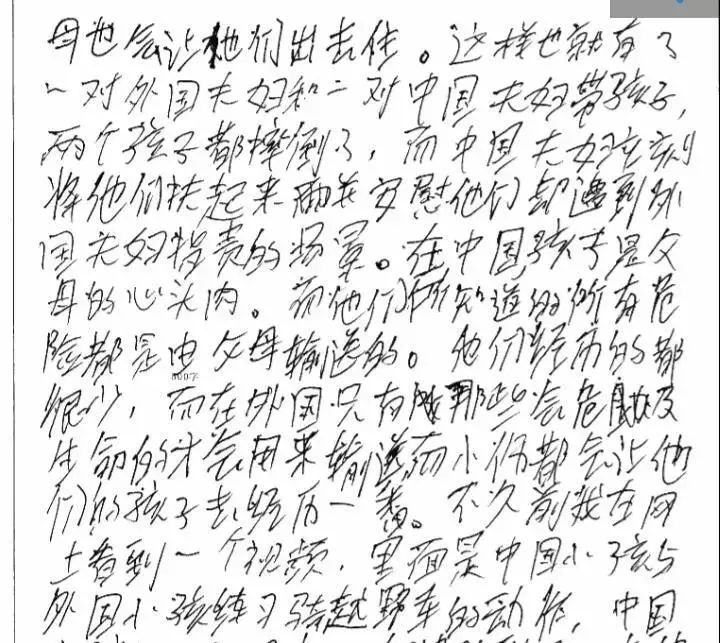 母也会让他们出去住。这样也就有了
一对外国夫妇和一对中国夫妇带孩子,
两个孩子都摔倒了,而中国夫妇立刻
将他们扶起来安慰他们却遭到外
国夫妇指责的场景。在中国孩子是父
母的心头肉。而他们所知道的所有危
险都是由父母输送的。他们经历的都
800字
很少,而在外国只有那些会危及
生命的才会用来输送而小伤都会让他
们的孩子去经历一番。不久前我在网
上看到一个视频,里面是中国小孩与
外国小孩练习骑越野车的动作,中国